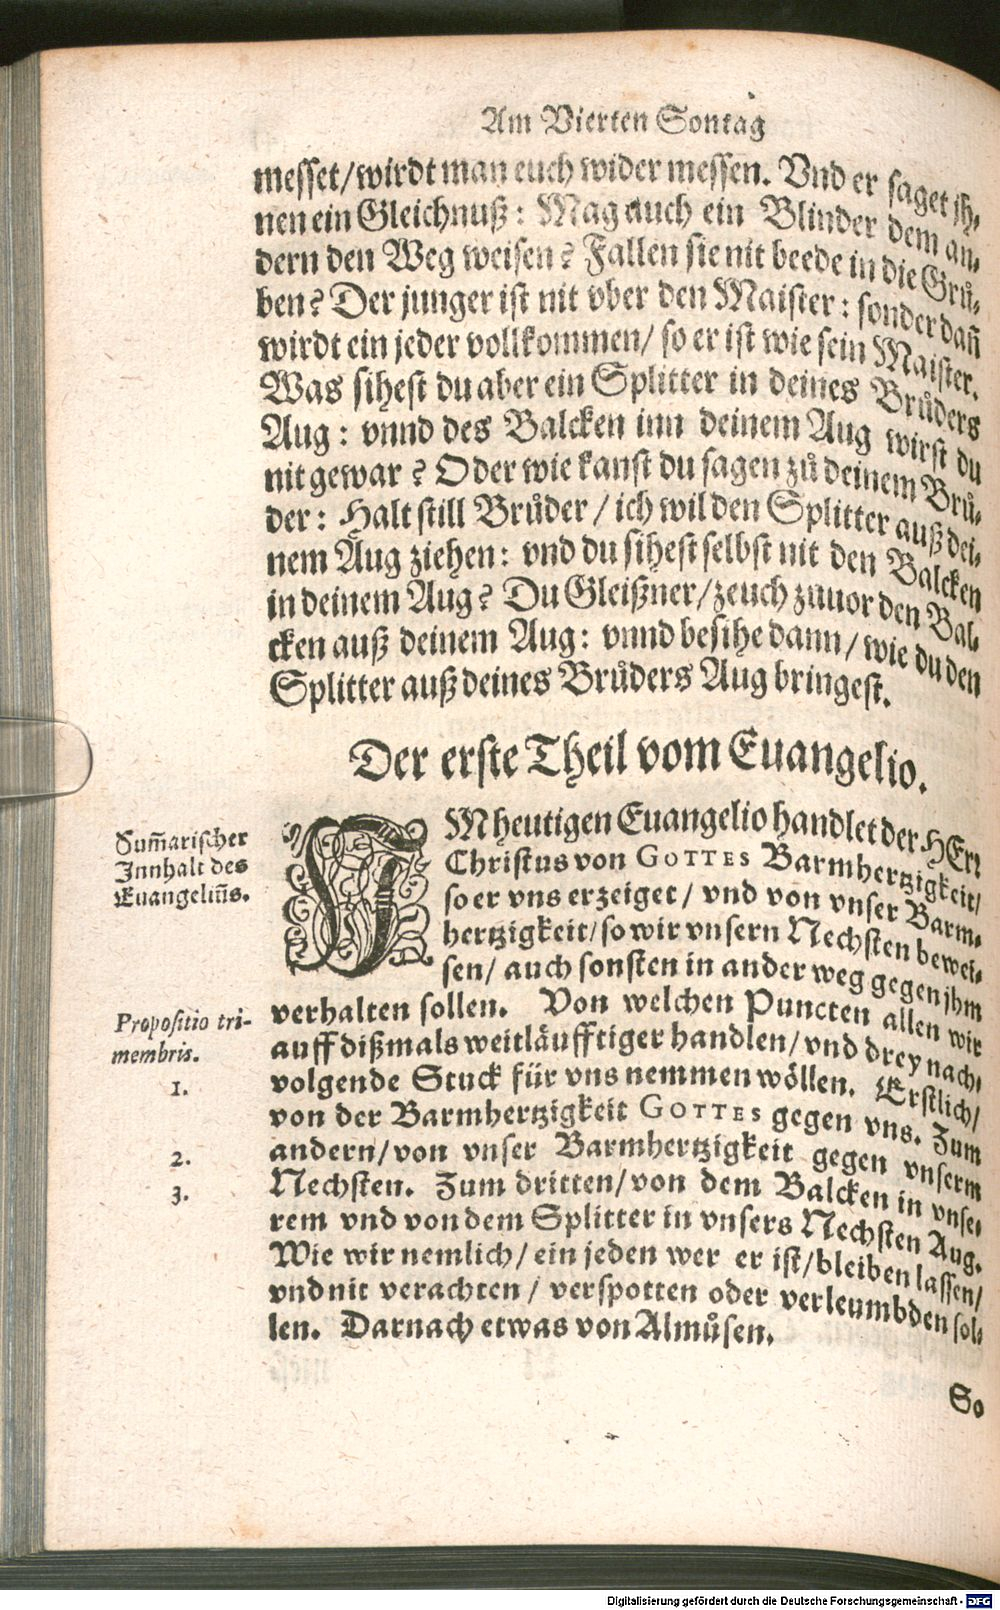 Am Vierten Sontag
messet/wirdt man euch wider messen. Vnd er saget jh-
nen ein Gleichnuß: Mag auch ein Blinder dem an-
dern den Weg weisen? Fallen sie nit beede in die Grů-
ben? Der junger ist nit vber den Maister: sonder dañ
wirdt ein jeder vollkommen/ so er ist wie sein Maister.
Was sihest du aber ein Splitter in deines Brůders
Aug: vnnd des Balcken inn deinem Aug wirst du
nit gewar? Oder wie kanst du sagen zů deinem Brů-
der: Halt still Brůder/ ich wil den Splitter auß dei-
nem Aug ziehen: vnd du sihest selbst nit den Balcken
in deinem Aug? Du Gleißner/zeuch zuuor den Bal-
cken auß deinem Aug: vnnd besihe dann/ wie du den
Splitter auß deines Brůders Aug bringest.
Der erste Theil vom Euangelio.
Sum̃arischer
Innhalt des
Euangeliũs.
IM heutigen Euangelio handlet der HErr
Christus von GOTTES Barmhertzigkeit/
so er vns erzeiget/ vnd von vnser Barm-
hertzigkeit/ so wir vnsern Nechsten bewei-
sen/ auch sonsten in ander weg gegen jhm
verhalten sollen. Von welchen Puncten allen wir
auff dißmals weitläufftiger handlen/ vnd drey nach-
volgende Stuck für vns nemmen wöllen. Erstlich/
von der Barmhertzigkeit GOTTES gegen vns. Zum
andern/ von vnser Barmhertzigkeit gegen vnserm
Nechsten. Zum dritten/ von dem Balcken in vnse-
rem vnd von dem Splitter in vnsers Nechsten Aug.
Wie wir nemlich/ ein jeden wer er ist/ bleiben lassen/
vnd nit verachten/ verspotten oder verleumbden sol-
len. Darnach etwas von Almůsen.
Propositio tri-
membris.
1.
2.
3.
So
Digitalisierung gefördert durch die Deutsche Forschungsgemeinschaft - DFG